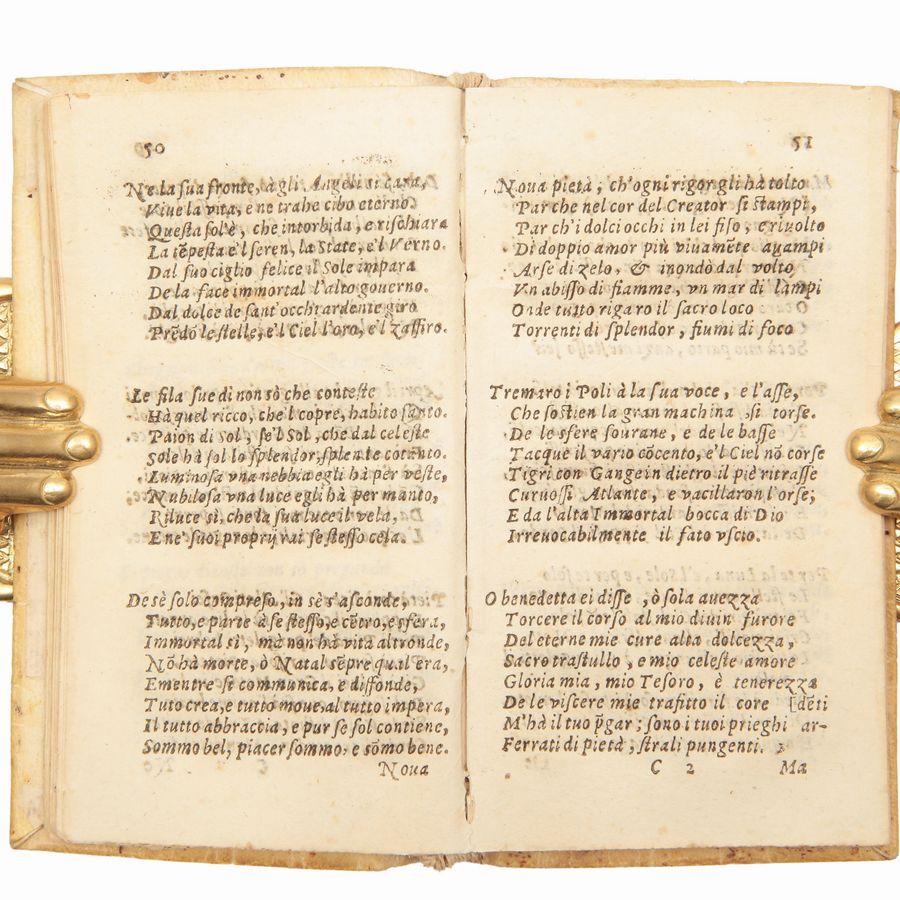 50
Ne la sua fronte, à gli Angeli sì cara,
Viue la vita, e ne trahe cibo eterno.
Questa sol'è, che intorbida, e rischiara
La tẽpesta e'l seren, la State, e'l Verno.
Dal suo ciglio felice il Sole impara
De la face immortal l'alto gouerno.
Dal dolce de sant'occhi ardente giro
Prẽdo le stelle, e'l Ciel l'oro, e'l zaffiro.
Le fila sue di non sò che conteste
Hà quel ricco, che'l copre, habito santo.
Paion di Sol, se'l Sol, che dal celeste
Sole hà sol lo splendor, splente cotanto.
Luminosa vna nebbia egli hà per veste,
Nubilosa vna luce egli hà per manto,
Riluce sì, che la sua luce il vela,
E ne' suoi proprij rai se stesso cela.
De sè solo compreso, in sè s'asconde,
Tutto, e parte à se stesso, e cẽtro, e sfera,
Immortal sì, mà non hà vita altronde,
Nõ hà morte, ò Natal sẽpre qual era,
E mentre si communica, e diffonde,
Tuto crea, e tutto moue, al tutto impera,
Il tutto abbraccia, e pur se sol contiene,
Sommo bel, piacer sommo, e sõmo bene.
Noua
51
Noua pietà, ch'ogni rigor gli hà tolto
Par che nel cor del Creator si stampi,
Par ch'i dolci occhi in lei fiso, e riuolto
Di doppio amor più viuamẽte auampi
Arse di zelo, & inondò dal volto
Vn abisso di fiamme, vn mar di lãmpi
Onde tutto rigaro il sacro loco
Torrenti di splendor, fiumi di foco
Tremaro i Poli à la sua voce, e l'asse,
Che sostien la gran machina, si torse.
De le sfere sourane, e de le basse
Tacque il vario cõcento, e'l Ciel nõ corse
Tigri con Gange in dietro il piè ritrasse
Curuossi Atlante, e vacillaron l'orse;
E da l'alta Immortal bocca di Dio
Irreuocabilmente il fato vscìo.
O benedetta ei disse, ò sola auezza
Torcere il corso al mio diuin furore
Del eterne mie cure alta dolcezza,
Sacro trastullo, e mio celeste amore
Gloria mia, mio Tesoro, è tenerezza
De le viscere mie trafitto il core [dẽti
M'hà il tuo p̃gar; sono i tuoi prieghi ar-
Ferrati di pietà, strali pungenti.
C 2 Ma